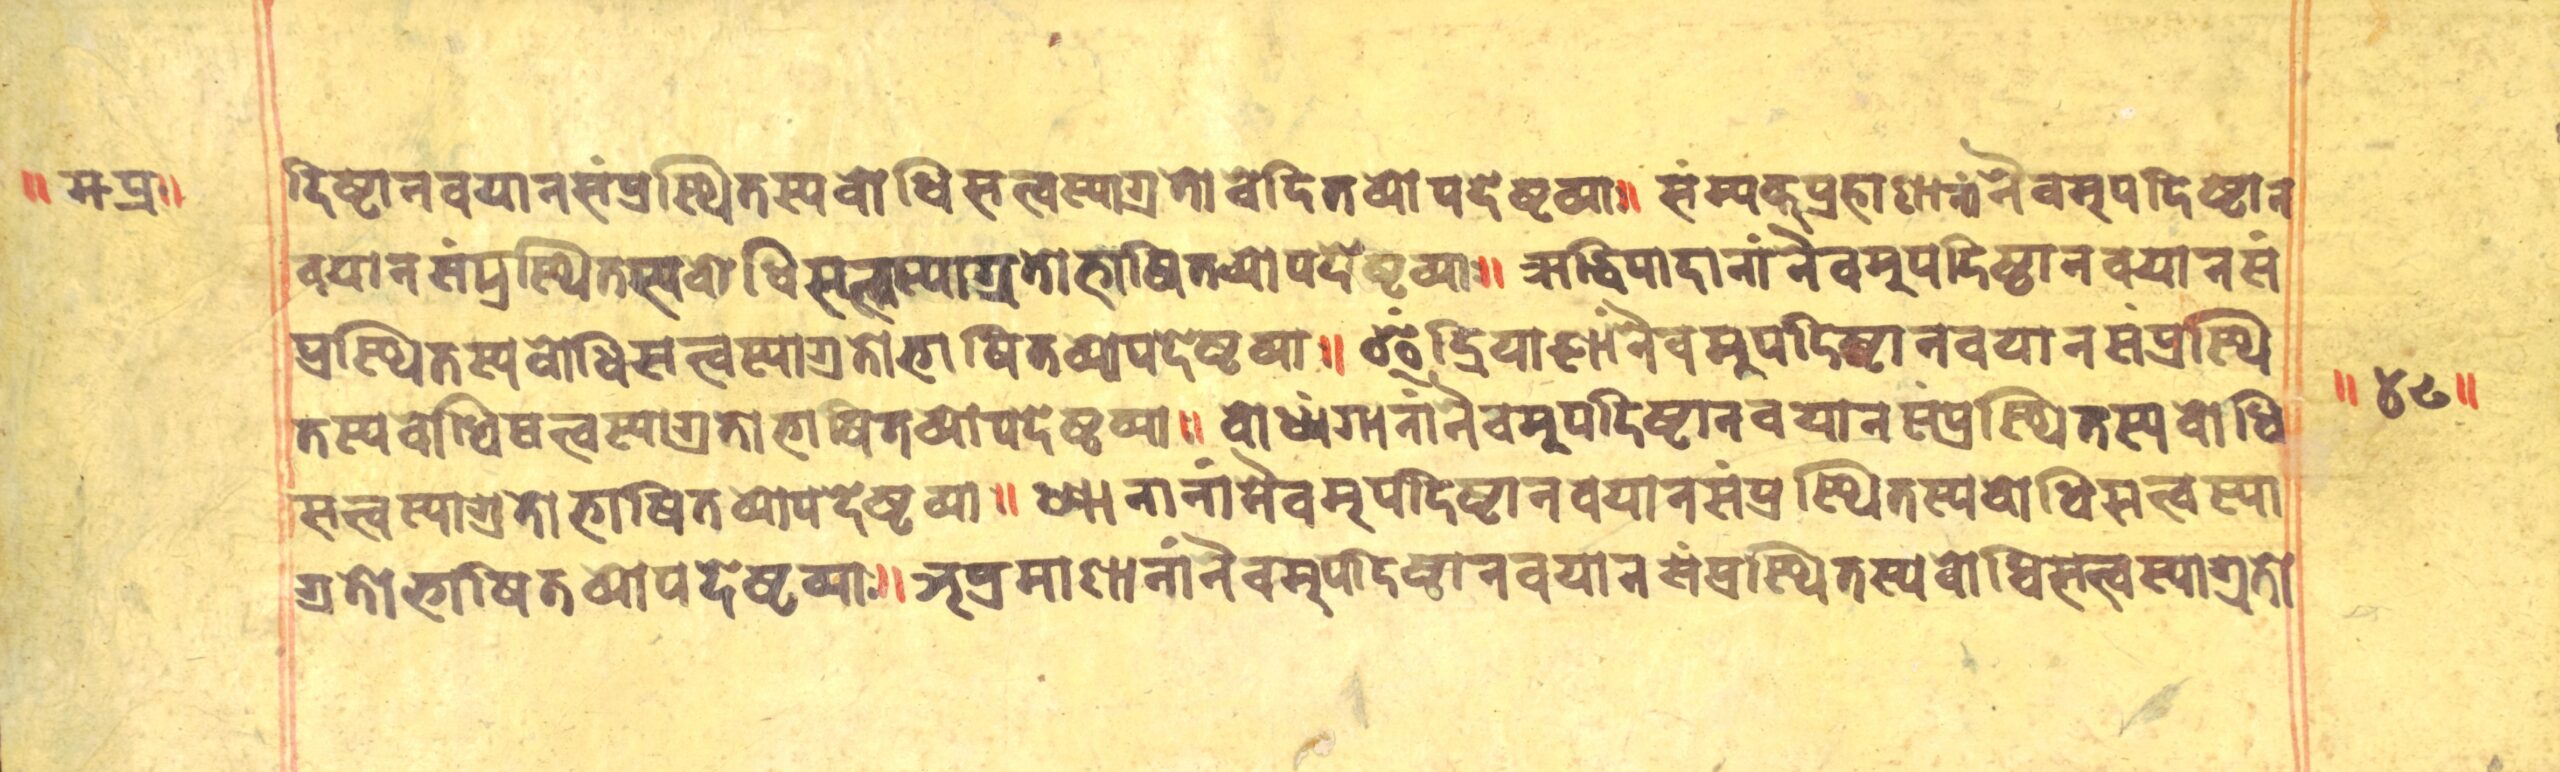 ॥ म·प्र॥
दिष्टानवयानसंप्रस्थितस्यवोधिसत्त्वस्याग्रतोवेदितव्योपदेष्टव्याः॥ संम्यक्प्रहाणानांनैवमुपदिष्टान
वयानसंप्रस्थितस्यवोधिसत्त्वस्याग्रतोभाषितव्योपदेष्टव्याः॥ ऋद्धिपादानांनैवमुपदिष्टानवयानसं
प्रस्थितस्यवोधिसत्त्वस्याग्रतोभाषितव्योपदेष्टव्या॥ इंद्रियाणांनैवमुपदिष्टानवयानसंप्रस्थि
तस्यवोधिषत्त्वस्याग्रतोभाषितव्योपदेष्टव्या॥ वोध्यंगानांनैवमुपदिष्टानवयानसंप्रस्थितस्यवोधि
सत्त्वस्याग्रतोभाषितव्योपदेष्टव्या॥ ध्यानानांनैवमुपदिष्टानवयानसंप्रस्थितस्यवोधिसत्त्वस्या
ग्रतोभाषितव्योपदेष्टव्याः॥ अप्रमाणानांनैवमुपदिष्टानवयानसंप्रस्थितस्यवोधिसत्त्वस्याग्रतो
॥ ४८॥